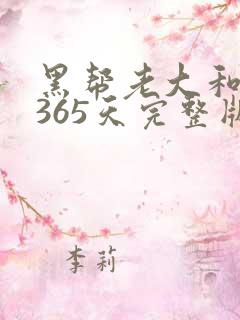 黑帮老大和
365天完整版
李莉